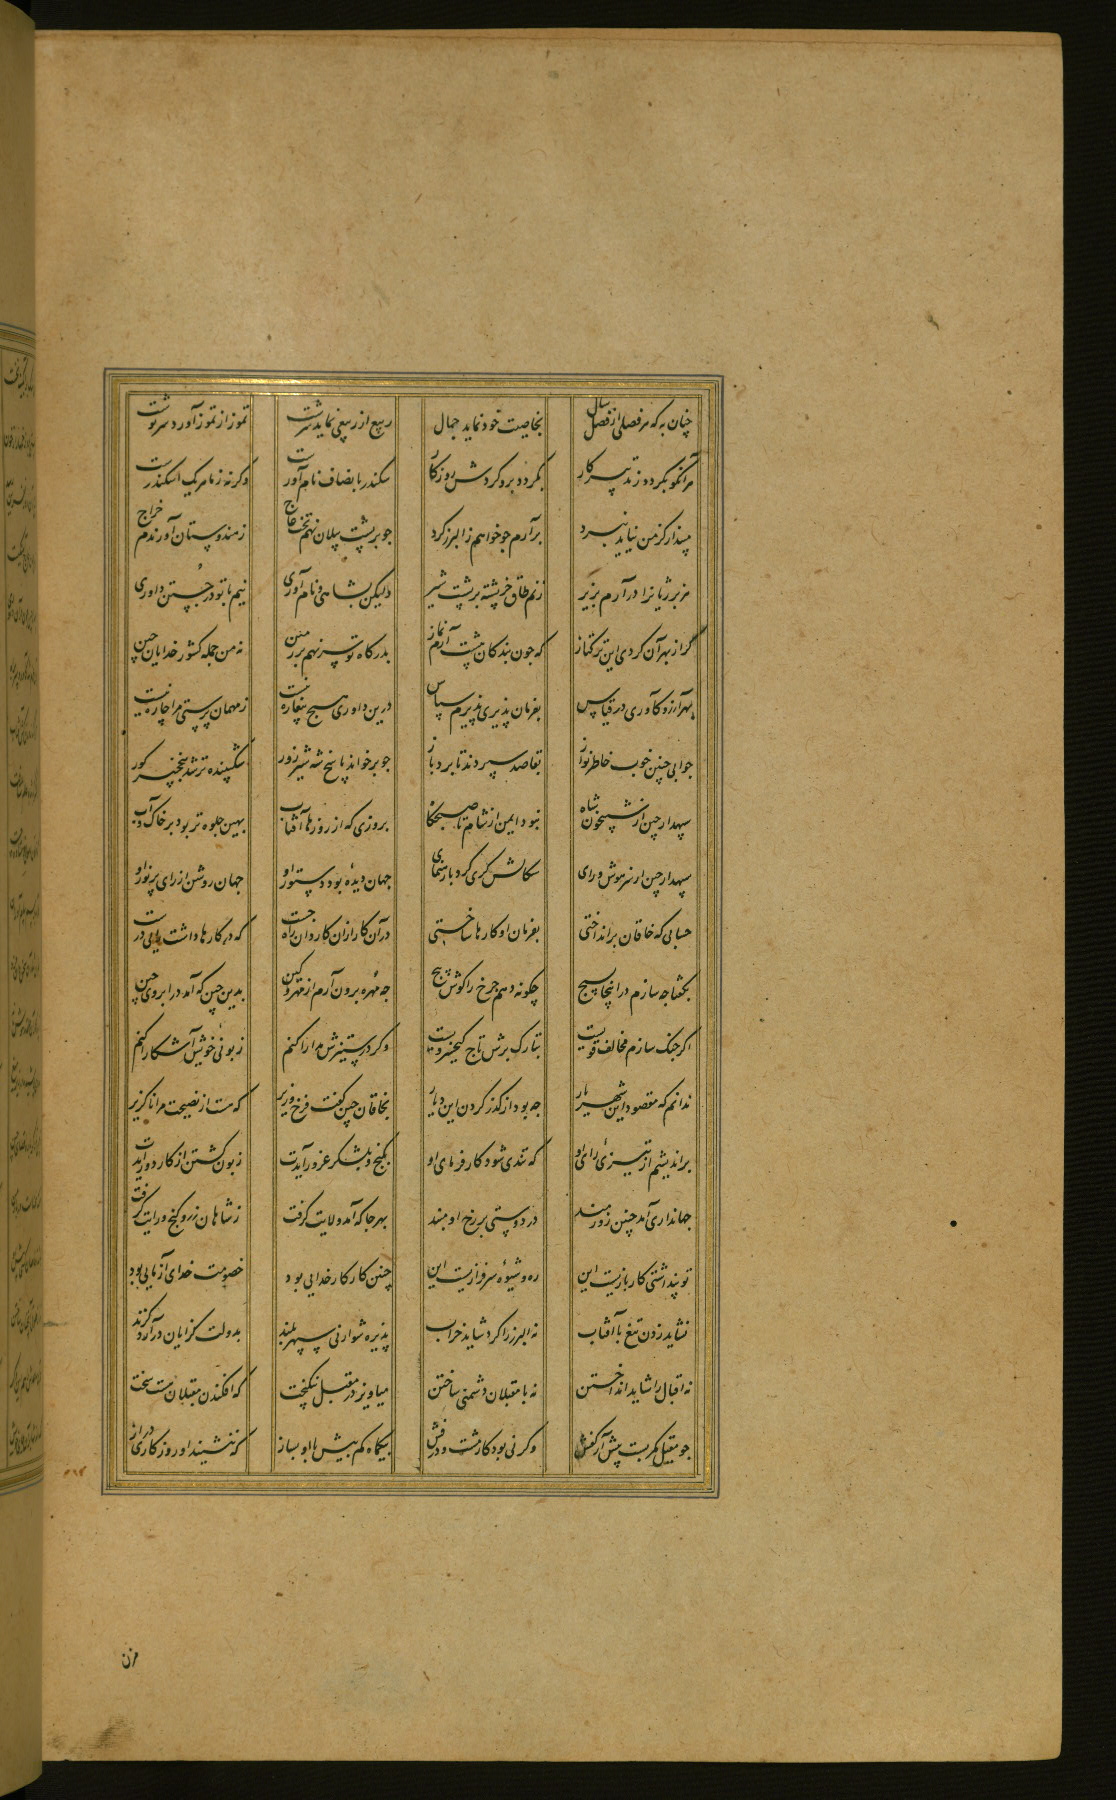 چنان به که هر فصلی از فصل سال بخاصیت خود نماید جمال ربیع از ربیعی نماید سرشت تموز از تموز آورد سرنوشت
هر آنکو بگردد ز تدبیر کار بگردد برو گردش روزگار سکندر بانصاف نام آورست وگرنه ز ما هر یک اسکندرست
مپندار کز من نیاید نبرد برآرم چو خواهم ز البرز گرد چو بر پشت پیلان نهم تخت عاج ز هندوستان آورندم خراج
هزبر ژیانرا درآرم بزیر زنم طاق خرپشته بر پشت شیر ولیکن بشاهی و نام آوری نیم با تو در جستن داوری
گر از بهر آن کردی این ترکتاز که چون بندگان پیشت آرم نماز بدرگاه تو سر نهم بر زمین نه من جمله کشور خدایان چین
بهر آرزو کآوری در قیاس بفرمان پذیری پذیرم سپاس درین داوری هیچ بیغاره نیست ز مهمان پرستی مرا چاره نیست
جوابی چنین خوب خاطرنواز بقاصد سپردند تا برد باز چو برخواند پاسخ شه شیرزور شکیبنده تر شد بنخچیر گور
سپهدار چین از شبیخون شاه نبود ایمن از شام تا صبحگاه بروزی که از روزها آفتاب بهین جلوه تر بود بر خاک و آب
سپهدار چین از سر هوش و رای سگالش گری کرد با رهنمای جهان دیده بود دستور او جهان روشن از رای پرنور او
حسابی که خاقان برانداختی بفرمان او کارها ساختی در آن کار از آن کاردان راه جست که در کارها داشت رایی درست
بگفتا چه سازم در اینجا بسیج چگونه دهم چرخ را گوش پیچ چه مهره برون آرم از مهر و کین بدین چین که آمد در ابروی چین
اگر جنگ سازم مخالف قویست بتارک برش تاج کیخسرویست وگر در ستیزش مدارا کنم زبونی خویش آشکارا کنم
ندانم که مقصود این شهریار چه بود از گذر کردن این دیار بخاقان چین گفت فرخ وزیر که هست از نصیحت مرا ناگزیر
براندیشم از تیزی رای او که تندی شود کارفرمای او بگنج و بلشکر غرور آیدت زبون گشتن از کار دور آیدت
جهانداری آمد چنین زورمند در دوستی بر رخ او مبند بهر جا که آمد ولایت گرفت ز شاهان زر و گنج و رایت گرفت
تو پنداشتی کار بازیست این ره و شیوه سرفرازیست این چنین کار کار خدایی بود خصومت خدای آزمایی بود
نشاید زدن تیغ با آفتاب نه البرز را کرد شاید خراب پذیره شو ار نی سپهر بلند بدولت گرایان درآرد گزند
نه اقبال را شاید انداختن نه با مقبلان دشمنی ساختن میاویز در مقبل نیکبخت که افکندن مقبلانست سخت
چو مقبل کمر بست پیش آر کفش وگر نی بود کار مشت و درفش بیکماه کم بیش با او بساز که ننشیند او روزگاری دراز